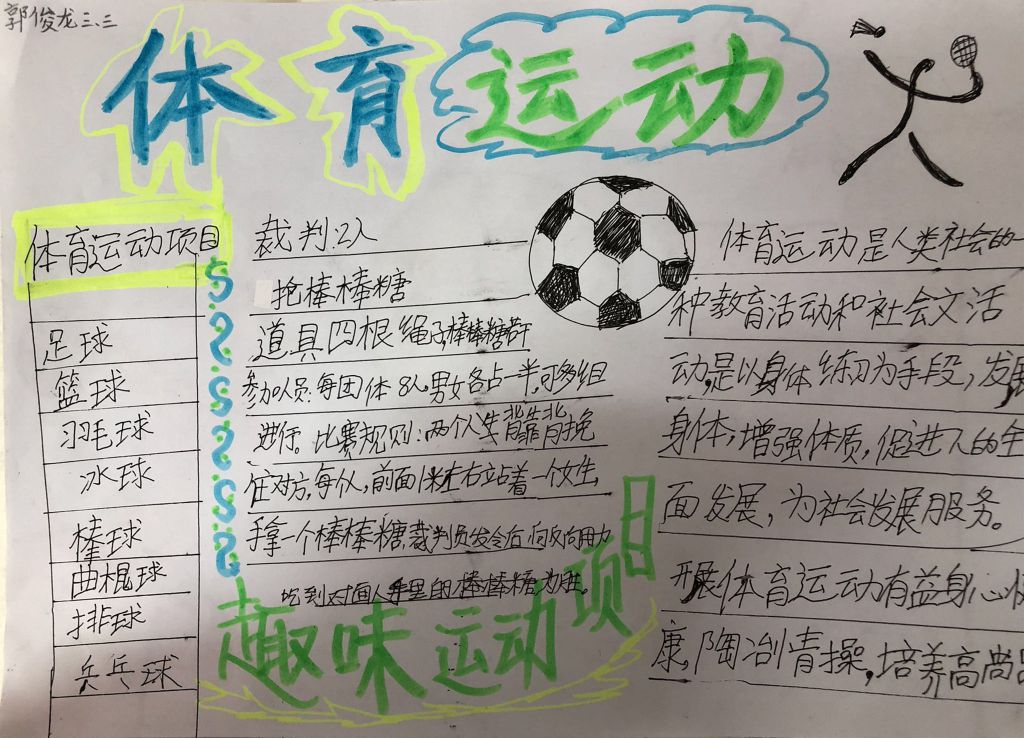 郭俊龙三、三
体育运动
体育运动项目
足球
篮球
羽毛球
冰球
棒球
曲棍球
排球
兵乒球
裁判:2人
抢棒棒糖
道具四根绳子,棒棒糖若干
参加人员:每团体8人,男女各占一半,可多组
进行。比赛规则:两个人生背靠背挽
住对方,每队,前面1米左右站着一个女生,
手拿一个棒棒糖,裁判员发令后,向反向用力
吃到对面人手里的棒棒糖为胜。
趣味运动项目
体育运动是人类社会的一
种教育活动和社会文活
动,是以身体练习为手段,发展
身体,增强体质,促进人的全
面发展,为社会发展服务。
开展体育运动有益身心健
康,陶冶青操,培养高尚品